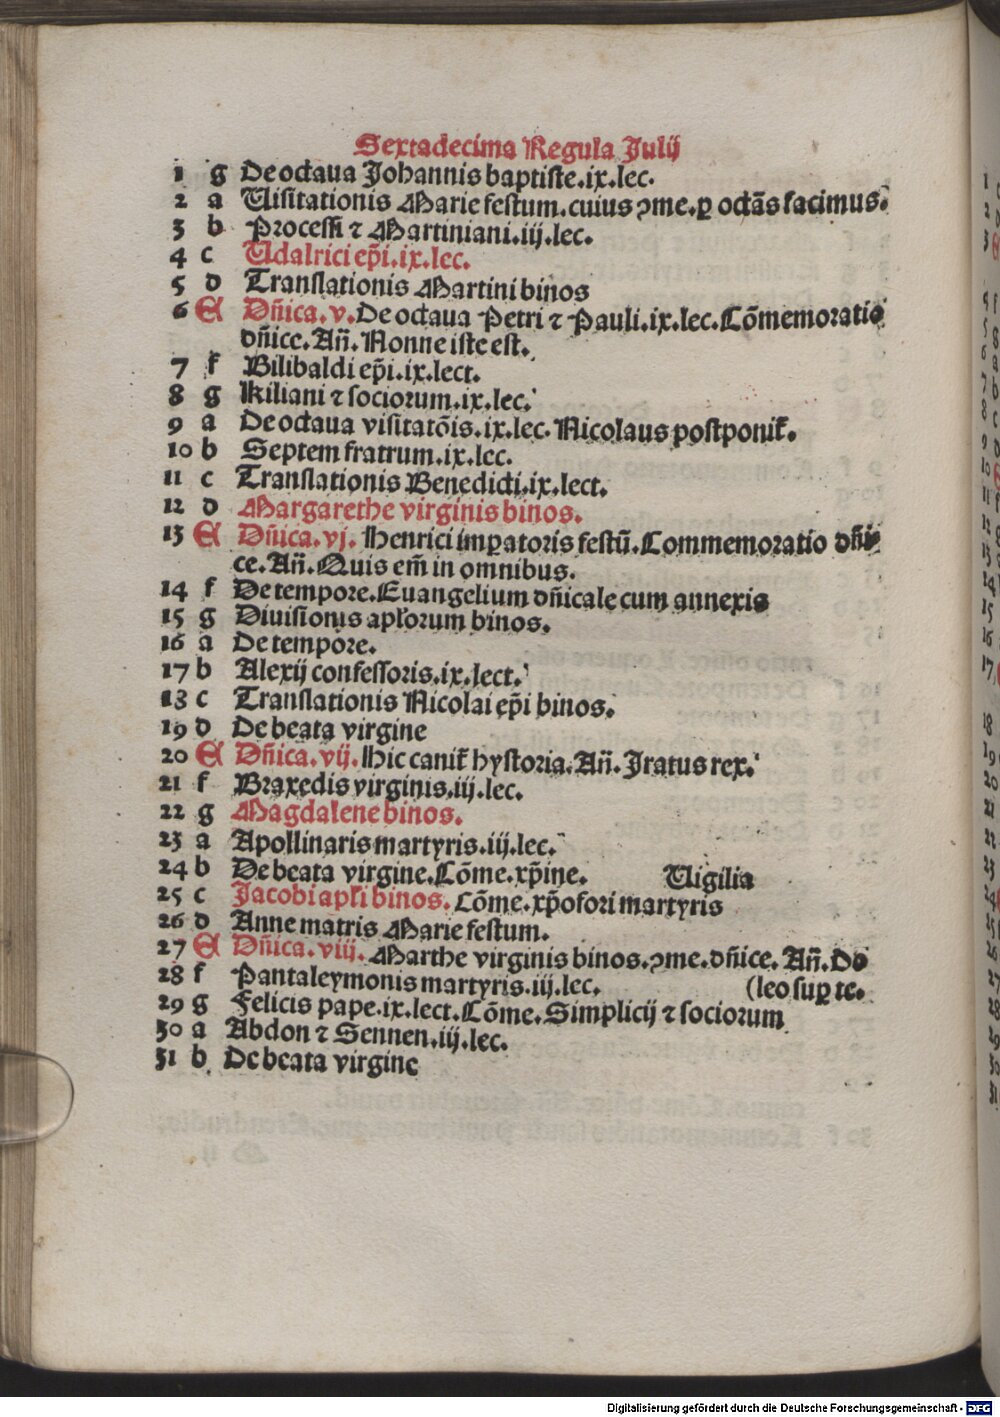 Sextadecima Regula Julij
1 g De octaua Johannis baptiste.ix.lec.
2 a Uisitationis Marie festum.cuius ɔme.ꝑ octãs facimus.
3 b Processi ⁊ Martiniani.iij.lec.
4 c Udalrici ep̃i.ix.lec.
5 d Translationis Martini binos
6 A Dñica.v.De octaua Petri ⁊ Pauli.ix.lec.Cõmemoratio
dñice.Añ.Nonne iste est.
7 f Bilibaldi ep̃i.ix.lect.
8 g Kiliani ⁊ sociorum.ix.lec.
9 a De octaua visitatõis.ix.lec.Nicolaus postponit̃.
10 b Septem fratrum.ix.lec.
11 c Translationis Benedicti.ix.lect.
12 d Margarethe virginis binos.
13 A Dñica.vj.Henrici imꝑatoris festũ.Commemoratio dñi
ce.Añ.Quis em̃ in omnibus.
14 f De tempore.Euangelium dñicale cum annexis
15 g Diuisionis apłorum binos.
16 a De tempore.
17 b Alexij confessoris.ix.lect.
18 c Translationis Nicolai ep̃i binos.
19 d De beata virgine
20 A Dñica.vij.Hic canit̃ hystoria.Añ.Iratus rex.
21 f Braxedis virginis.iij.lec.
22 g Magdalene binos.
23 a Apollinaris martyris.iij.lec.
24 b De beata virgine.Cõme.xp̃ine. Uigilia
25 c Jacobi apłi binos.Cõme.xp̃ofori martyris
26 d Anne matris Marie festum.
27 A Dñica.viij.Marthe virginis binos.ɔme.dñice.Añ.Do
28 f Pantaleymonis martyris.iij.lec. (leo suꝑ te.
29 g Felicis pape.ix.lect.Cõme.Simplicij ⁊ sociorum
30 a Abdon ⁊ Sennen.iij.lec.
31 b De beata virgine
Digitalisierung gefördert durch die Deutsche Forschungsgemeinschaft - DFG